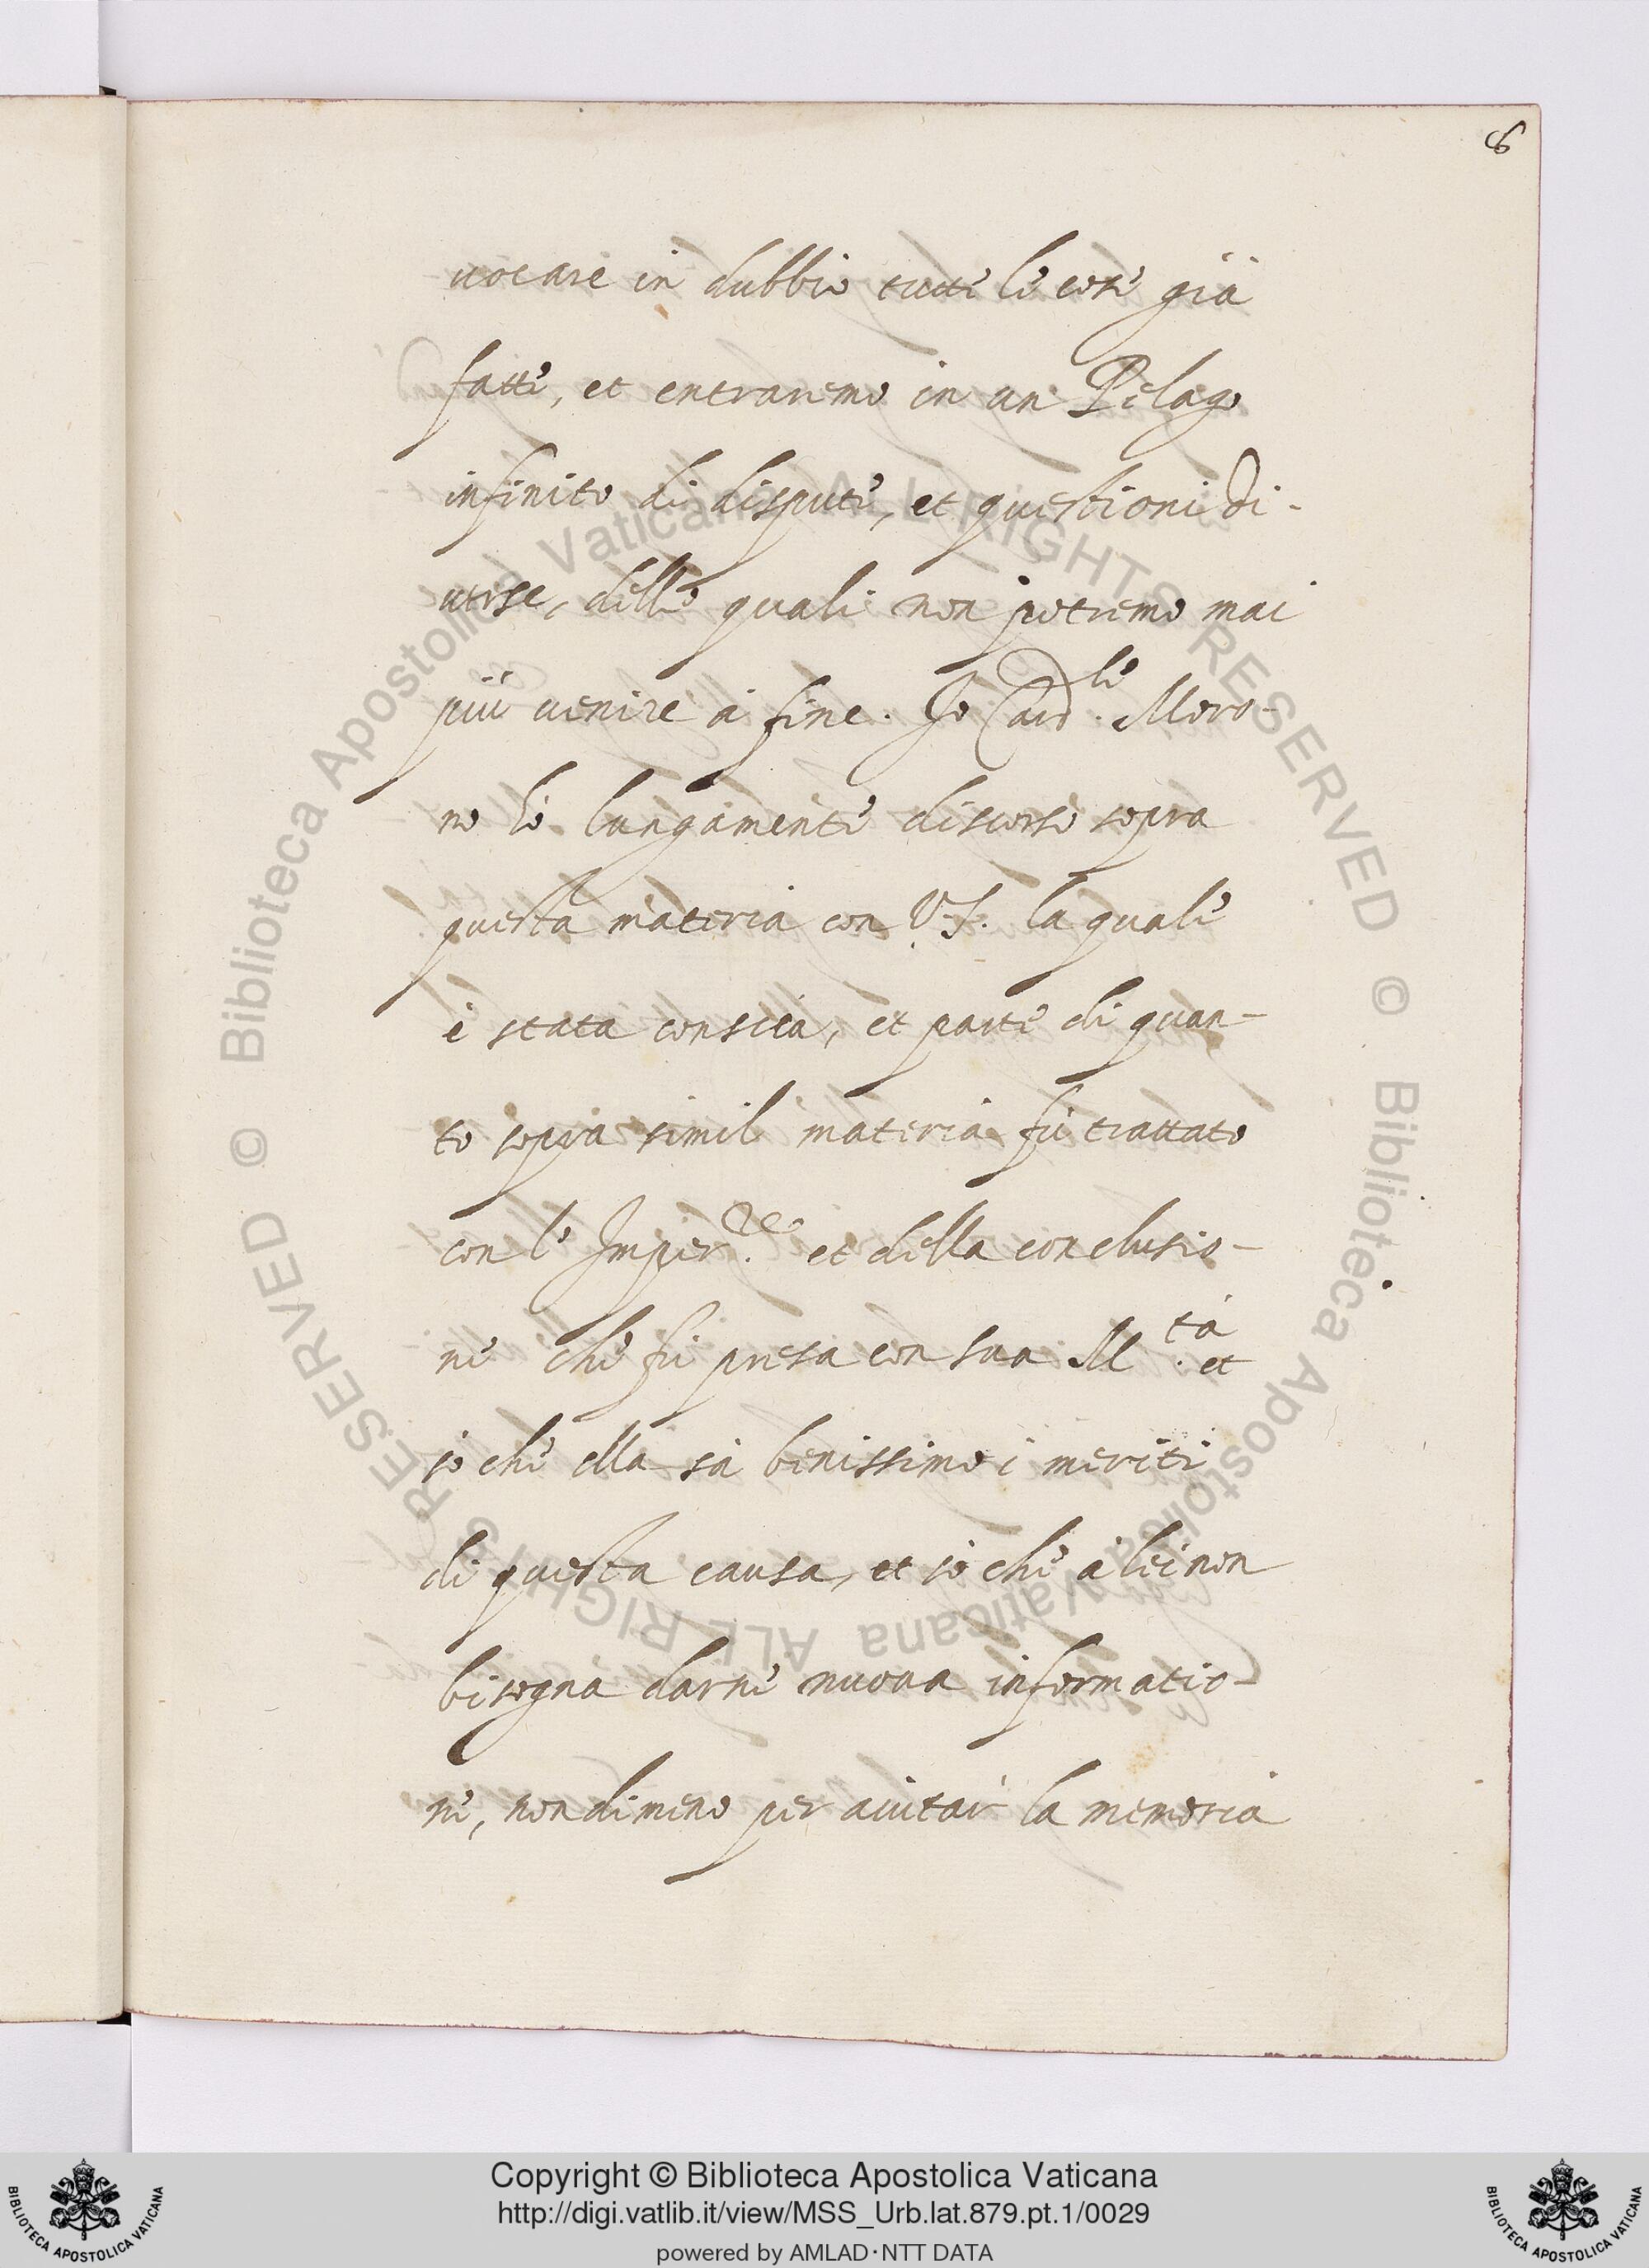 6
uocare in dubbio tutte le cose già
fatte, et entraremo in un Pelago
infinito di dispute, et questioni di-
uerse, delle quali non potremo mai
più uenire à fine. Io Card.le Moro-
ne hò lungamente discorso sopra
questa materia con V.S. la quale
è stata conscia, et parte di quan-
to sopra simil materia fù trattato
con l'Imper.re et della conclusio-
ne che fù presa con sua M.tà et
sò che ella sà benissimo i meriti
di questa causa, et sò che à lei non
bisogna darne nuova informatio-
ne, nondimeno per aiutar la memoria
© Biblioteca Apostolica Vaticana ALL RIGHTS RESERVED
© Biblioteca Apostolica Vaticana ALL RIGHTS RESERVED
Copyright © Biblioteca Apostolica Vaticana
http://digi.vatlib.it/view/MSS_Urb.lat.879.pt.1/0029
powered by AMLAD·NTT DATA
BIBLIOTECA APOSTOLICA VATICANA
BIBLIOTECA APOSTOLICA VATICANA